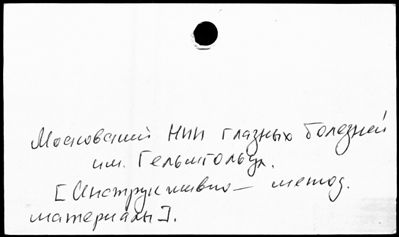 Московский НИИ глазных болезней
им. Гельмгольца.
[Инструктивно – метод.
материалы].